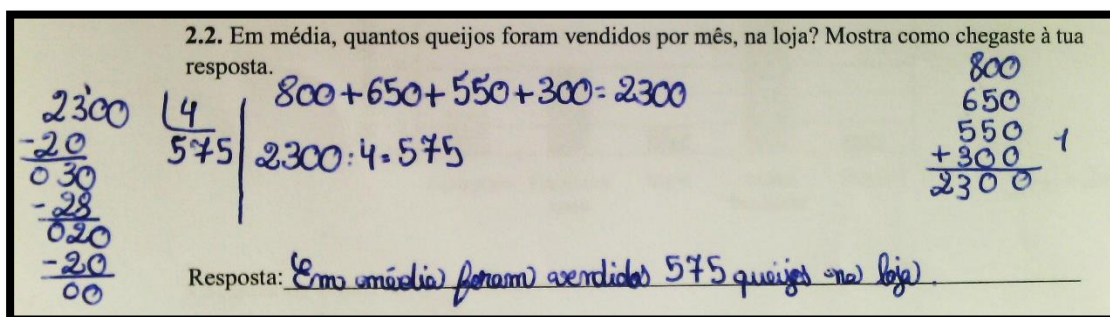 2.2. Em média, quantos queijos foram vendidos por mês, na loja? Mostra como chegaste à tua
resposta.
800+650+550+300=2300
2300:4=575
2300 4
-20 575
030
-28
020
-20
00
800
650
550 1
+300
2300
Resposta: Em média foram vendidos 575 queijos na loja.